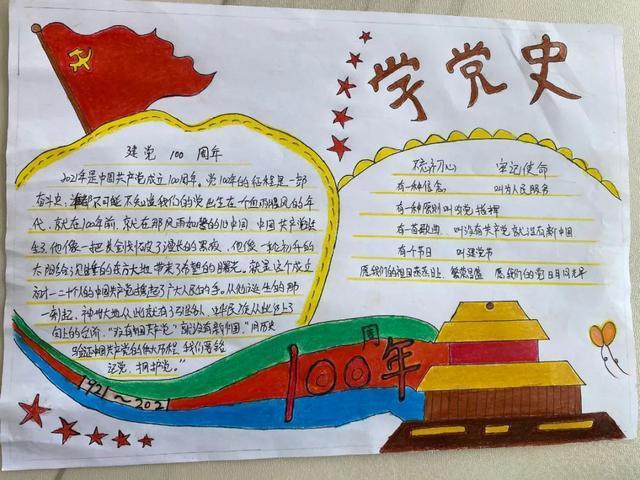 学党史
建党 100 周年
2021年是中国共产党成立100周年。党100年的征程是一部
奋斗史,谁都不可能不知道我们的党已生在个血雨腥风的年
代,就在100年前,就在那风雨如磐的旧中国,中国共产党诞
生,他像一把长剑划破了漫长的黑夜,他像一轮初升的
太阳给沉睡的东方大地,带来了希望的曙光。就是这个成立
一刻起,神州大地从此就有了引路人,中华民族从此踏上了
向上的台阶,"没有中国共产党,就没有新中国,"用历史
验证中国共产党的伟大历程,我们要铭
记党,拥护党。"
不忘初心 牢记使命
有一种信念, 叫为人民服务
有一种原则叫党指挥
有一首歌曲,叫没有共产党就没有新中国
有个节日 叫建党节
愿我们的祖国蒸蒸日上、繁荣昌盛 愿我们的党日月同光年
1921～2021
100周年